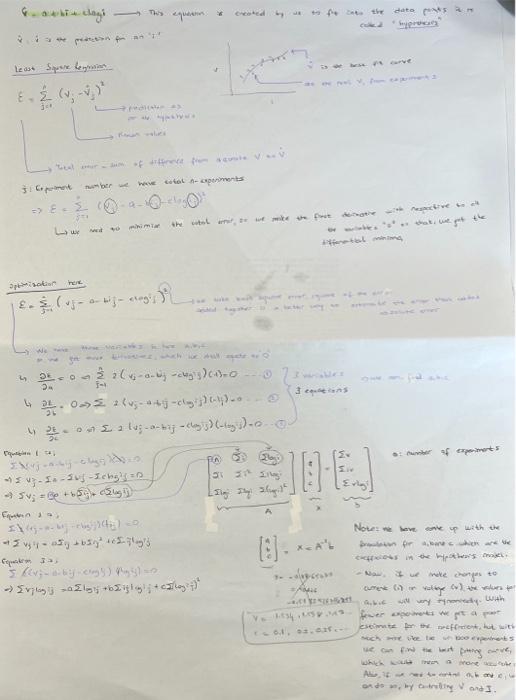 v̂ = a + bi + clogi → This equation is created by us to fit into the data points & is
called "hypothesis"
v̂, is the prediction for an "i"
Least Square Regression
v̂ is the best fit curve
are the real V, from experiments
E = Σ (vj - v̂j)²
→ prediction as
per the hypothesis
→ Known values
→ Total error - sum of difference from accurate V to v̂
j: Experiment number we have total n-experiments
=> E = Σ (vj - a - bij - clogij)²
↳ we need to minimise the total error, so we make the first derivative with respective to all
the variables "0" so that, we get the
differential minima
Optimisation here
E = Σ (vj - a - bij - clogij)²
→ we take square error, square of the error
added together is a better way to estimate the error than
absolute error
→ We have three variables a,b,c
so we get three derivatives, which we shall equate to 0
↳ ∂E/∂a = 0 => Σ 2(vj - a - bij - clogij)(-1) = 0 --- ①
↳ ∂E/∂b = 0 => Σ 2(vj - a - bij - clogij)(-ij) = 0 --- ②
↳ ∂E/∂c = 0 => Σ 2(vj - a - bij - clogij)(-logij) = 0 --- ③
3 variables
3 equations
→ we can find a,b,c
Equation 1 is,
Σ(vj - a - bij - clogij) = 0
=> Σvj - Σa - Σbij - Σclogij = 0
=> Σvj = an + bΣij + cΣlogij
n Σi Σlogi
Σi Σi² Σilogi
Σlogi Σilogi Σ(logi)²
A
a
b
c
x
=
Σv
Σiv
Σvlogi
b
n: number of experiments
Equation 2 is,
Σ(vj - a - bij - clogij)(ij) = 0
=> Σvjij = aΣij + bΣij² + cΣijlogij
Equation 3 is,
Σ(vj - a - bij - clogij)(logij) = 0
=> Σvjlogij = aΣlogij + bΣijlogij + cΣ(logij)²
a
b
c
= x = A⁻¹b
V = 1.234, 1.138,
i = 0.1, 0.2, 0.25....
Note: We have come up with the
formulation for a,b and c which are the
coefficients in the hypothesis model.
- Now, if we make changes to
current (i) or voltage (v), the values for
a,b,c will vary dynamically. With
fewer experiments we get a poor
estimate for the coefficient, but with
much more like be experiments
we can find the best fitting curve,
which would mean a more accurate
Also, if we need to control a,b and c, we
can do so, by controlling V and I.